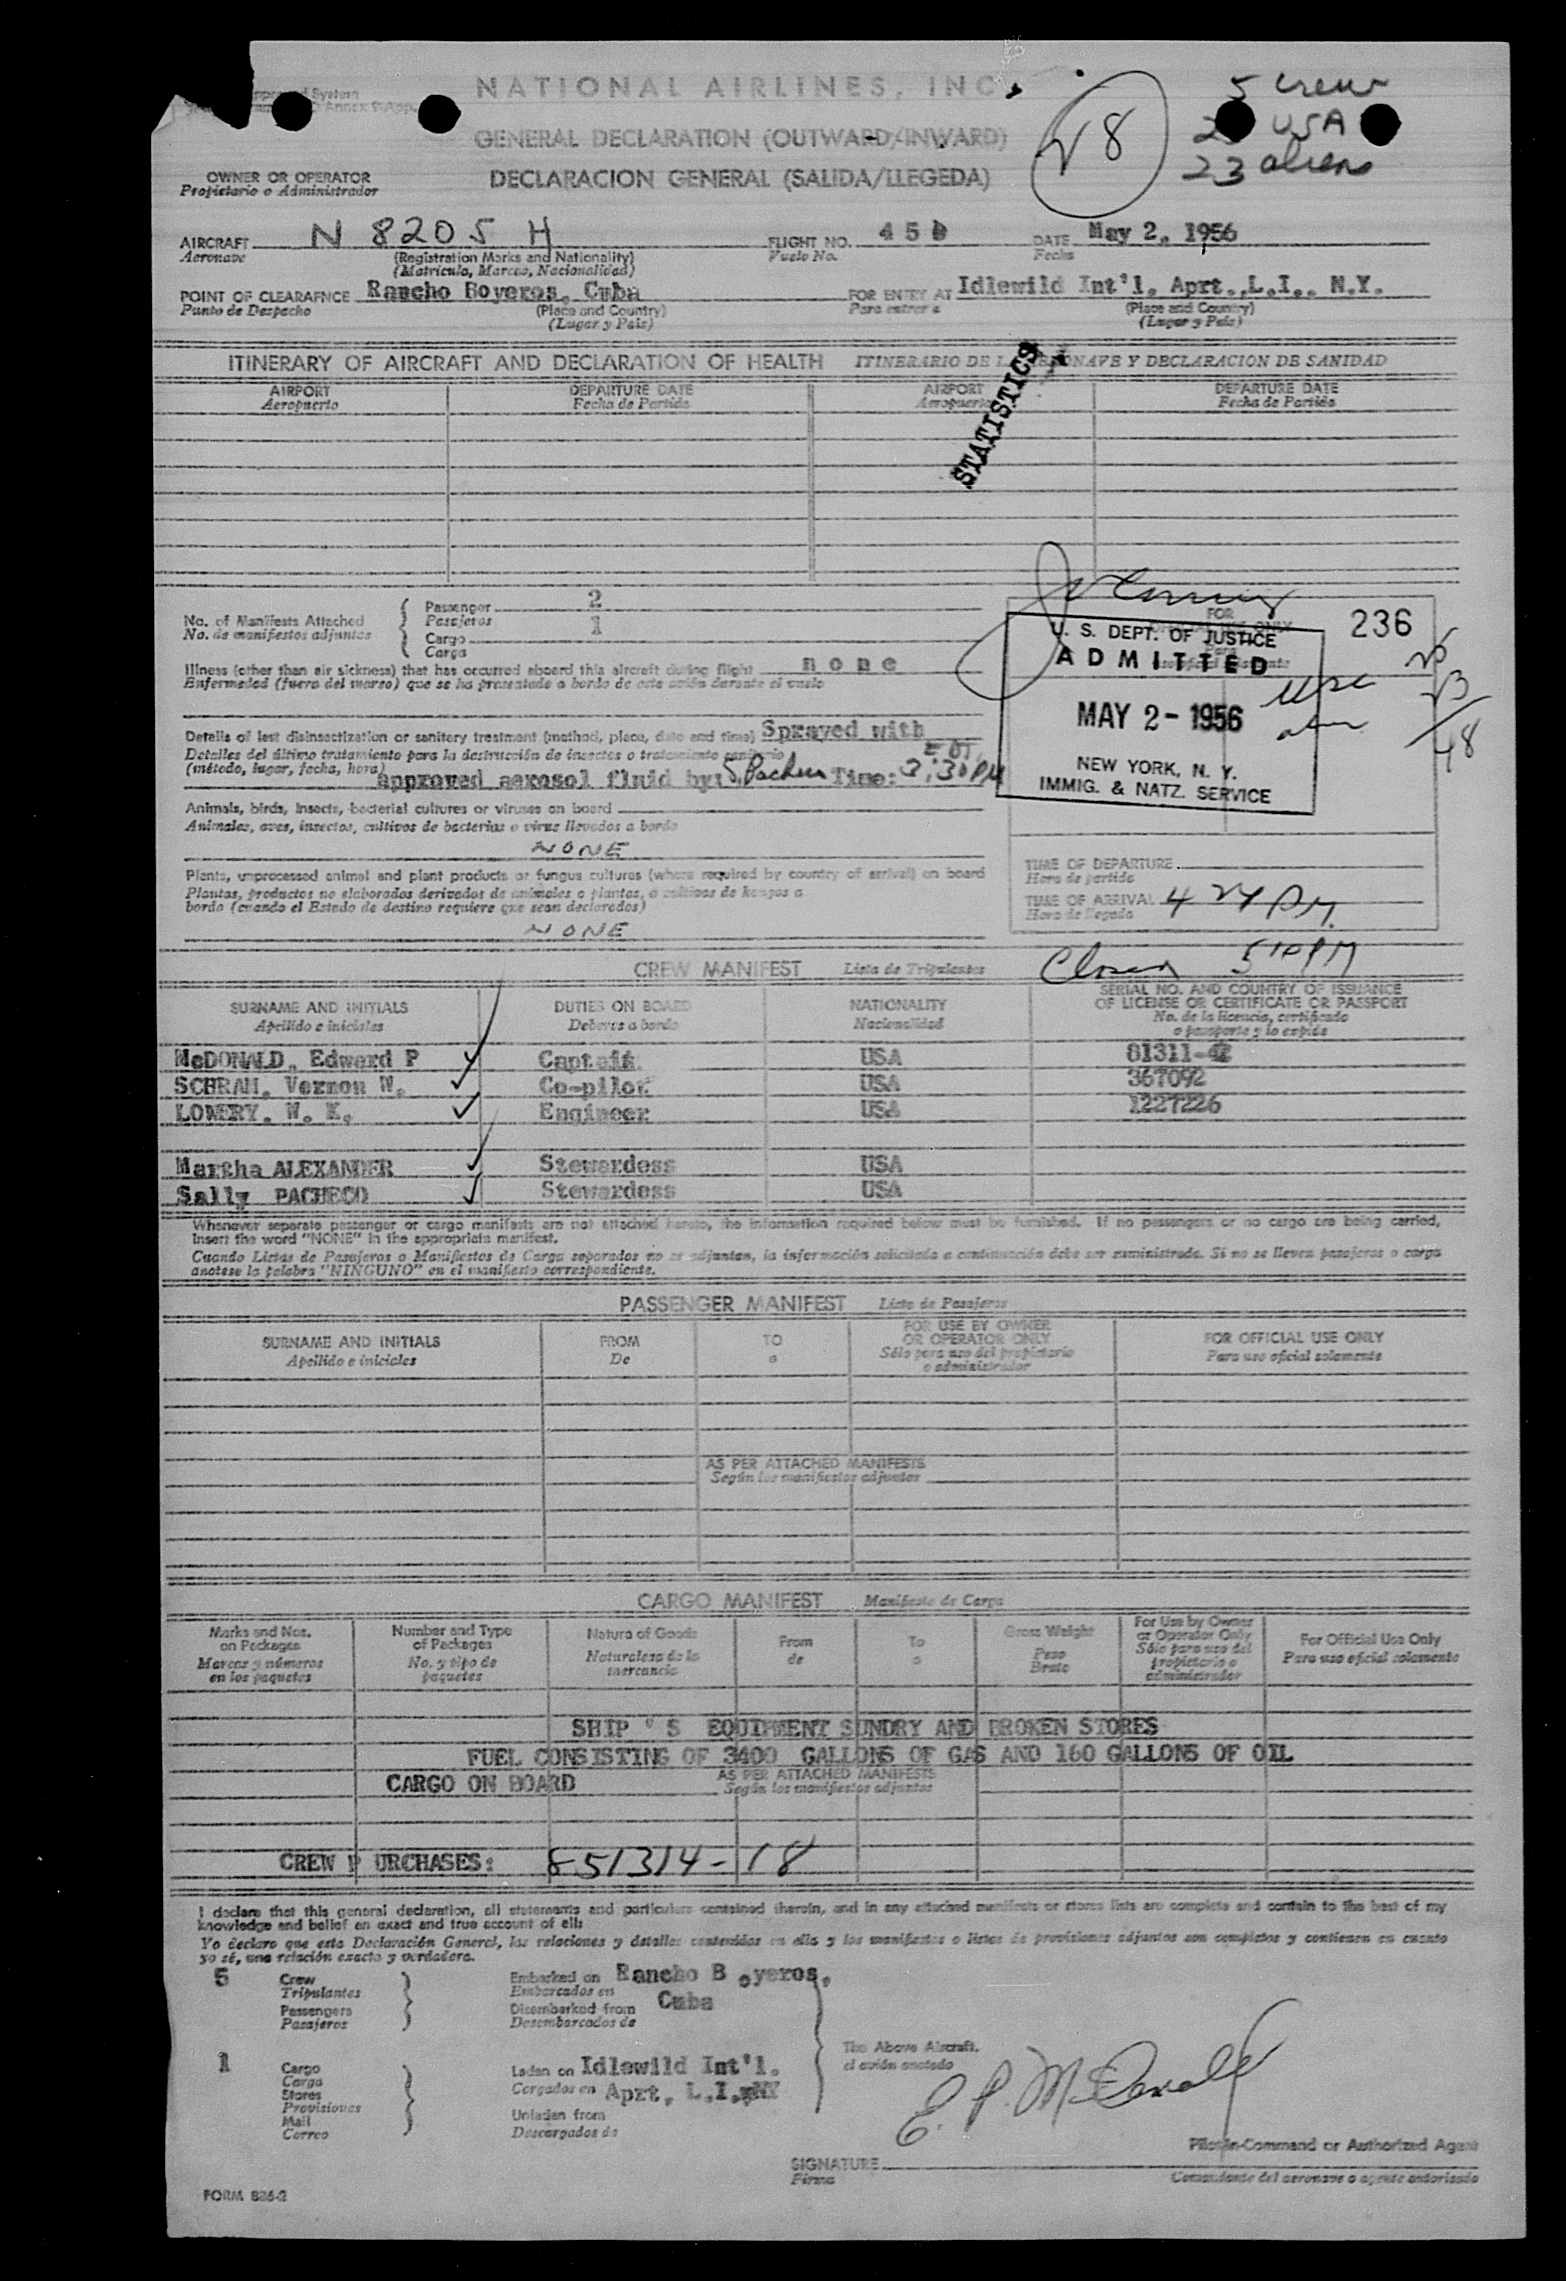 NATIONAL AIRLINES, INC.
GENERAL DECLARATION (OUTWARD/INWARD)
DECLARACION GENERAL (SALIDA/LLEGEDA)
OWNER OR OPERATOR
Propietario o Administrador
48
5 crew
USA
23 aliens
AIRCRAFT N 8205 H FLIGHT NO. 45 DATE May 2, 1956
Aeronave (Registration Marks and Nationality) Vuelo No. Fecha
(Matricula, Marcas, Nacionalidad)
POINT OF CLEARAFNCE Rancho Boyeros, Cuba FOR ENTRY AT Idlewild Int'l. Aprt.,L.I., N.Y.
Punto de Despacho (Place and Country) Para entrar a (Place and Country)
(Lugar y Pais) (Lugar y Pais)
STATISTICS
ITINERARY OF AIRCRAFT AND DECLARATION OF HEALTH ITINERARIO DE LA AERONAVE Y DECLARACION DE SANIDAD
AIRPORT DEPARTURE DATE AIRPORT DEPARTURE DATE
Aeropuerto Fecha de Partida Aeropuerto Fecha de Partida
No. of Manifests Attached
No. de manifiestos adjuntos
Passenger 2
Pasajeros
Cargo 1
Carga
Illness (other than air sickness) that has occurred aboard this aircraft during flight none
Enfermedad (fuera del mareo) que se ha presentado a bordo de este avión durante el vuelo
Details of last disinsectization or sanitary treatment (method, place, date and time) Sprayed with
Detalles del último tratamiento para la destrucción de insectos o tratamiento sanitario
(método, lugar, fecha, hora)
approved aerosol fluid by: S. Pacheco Time: 3:30 PM EDT
Animals, birds, insects, bacterial cultures or viruses on board
Animales, aves, insectos, cultivos de bacterias o virus llevados a bordo
NONE
Plants, unprocessed animal and plant products or fungus cultures (where required by country of arrival) on board
Plantas, productos no elaborados derivados de animales o plantas, o cultivos de hongos a
bordo (cuando el Estado de destino requiere que sean declarados)
NONE
FOR
236
U. S. DEPT. OF JUSTICE
ADMITTED
MAY 2 - 1956
NEW YORK, N. Y.
IMMIG. & NATZ. SERVICE
usc 25
23
48
TIME OF DEPARTURE
Hora de partida
TIME OF ARRIVAL 4 24 PM.
Hora de llegada
Closed 5:10 PM
CREW MANIFEST Lista de Tripulantes
SURNAME AND INITIALS DUTIES ON BOARD NATIONALITY SERIAL NO. AND COUNTRY OF ISSUANCE
OF LICENSE OR CERTIFICATE OR PASSPORT
Apellido e iniciales Deberes a bordo Nacionalidad No. de la licencia, certificado
o pasaporte y lo expide
McDONALD, Edward P Captain USA 81311-42
SCHRAM, Vernon W. Co-pilot USA 367092
LOWERY, W. K. Engineer USA 1227226
Martha ALEXANDER Stewardess USA
Sally PACHECO Stewardess USA
Whenever separate passenger or cargo manifests are not attached hereto, the information required below must be furnished. If no passengers or no cargo are being carried,
insert the word "NONE" in the appropriate manifest.
Cuando Listas de Pasajeros o Manifiestos de Carga separados no se adjuntan, la información solicitada a continuación debe ser suministrada. Si no se llevan pasajeros o carga
anotese la palabra "NINGUNO" en el manifiesto correspondiente.
PASSENGER MANIFEST Lista de Pasajeros
SURNAME AND INITIALS FROM TO FOR USE BY OWNER OR OPERATOR ONLY FOR OFFICIAL USE ONLY
Apellido e iniciales De a Sólo para uso del propietario o administrador Para uso oficial solamente
AS PER ATTACHED MANIFESTS
Según los manifiestos adjuntos
CARGO MANIFEST Manifiesto de Carga
Marks and Nos. on Packages Number and Type of Packages Nature of Goods From To Gross Weight For Use by Owner or Operator Only For Official Use Only
Marcas y números en los paquetes No. y tipo de paquetes Naturaleza de la mercancia de a Peso Bruto Sólo para uso del propietario o administrador Para uso oficial solamente
SHIP'S EQUIPMENT SUNDRY AND BROKEN STORES
FUEL CONSISTING OF 3400 GALLONS OF GAS AND 160 GALLONS OF OIL
CARGO ON BOARD AS PER ATTACHED MANIFESTS
Según los manifiestos adjuntos
CREW P URCHASES: 851314-18
I declare that this general declaration, all statements and particulars contained therein, and in any attached manifests or stores lists are complete and contain to the best of my
knowledge and belief an exact and true account of all:
Yo declaro que esta Declaración General, las relaciones y detalles contenidos en ella y los manifiestos o listas de provisiones adjuntos son completos y contienen en cuanto
yo sé, una relación exacta y verdadera.
5 Crew Embarked on Rancho B oyeros,
Tripulantes Embarcados en Cuba
Passengers Disembarked from
Pasajeros Desembarcados de
The Above Aircraft.
el avión anotado
1 Cargo Laden on Idlewild Int'l.
Carga Cargados en Aprt, L.I.,NY
Stores
Provisiones
Mail Unladen from
Correo Descargados de
E. P. McDonald
Pilot-in-Command or Authorized Agent
SIGNATURE
Firma Comandante del aeronave o agente autorizado
FORM 826-2